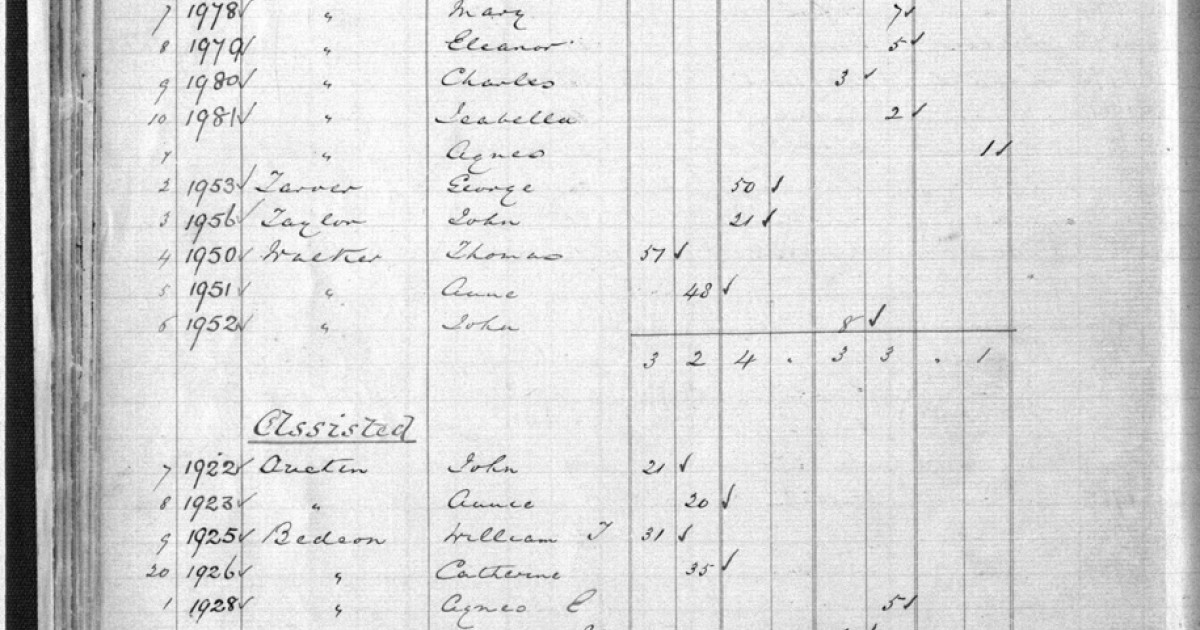 7 1978 ✓ " Mary 7 ✓
8 1979 ✓ " Eleanor 5 ✓
9 1980 ✓ " Charles 3 ✓
10 1981 ✓ " Isabella 2 ✓
" Agnes 1 ✓
2 1953 ✓ Tarver George 50 ✓
3 1956 ✓ Taylor John 21 ✓
4 1950 ✓ Walker Thomas 57 ✓
5 1951 ✓ " Anne 48 ✓
6 1952 ✓ " John 8 ✓
3 2 4 . 3 3 . 1
Assisted
7 1922 ✓ John 21 ✓
8 1923 ✓ " Annie 20 ✓
9 1925 ✓ Bedson William T 31 ✓
20 1926 ✓ " Catherine 35 ✓
1 1928 ✓ " Agnes E 5 ✓